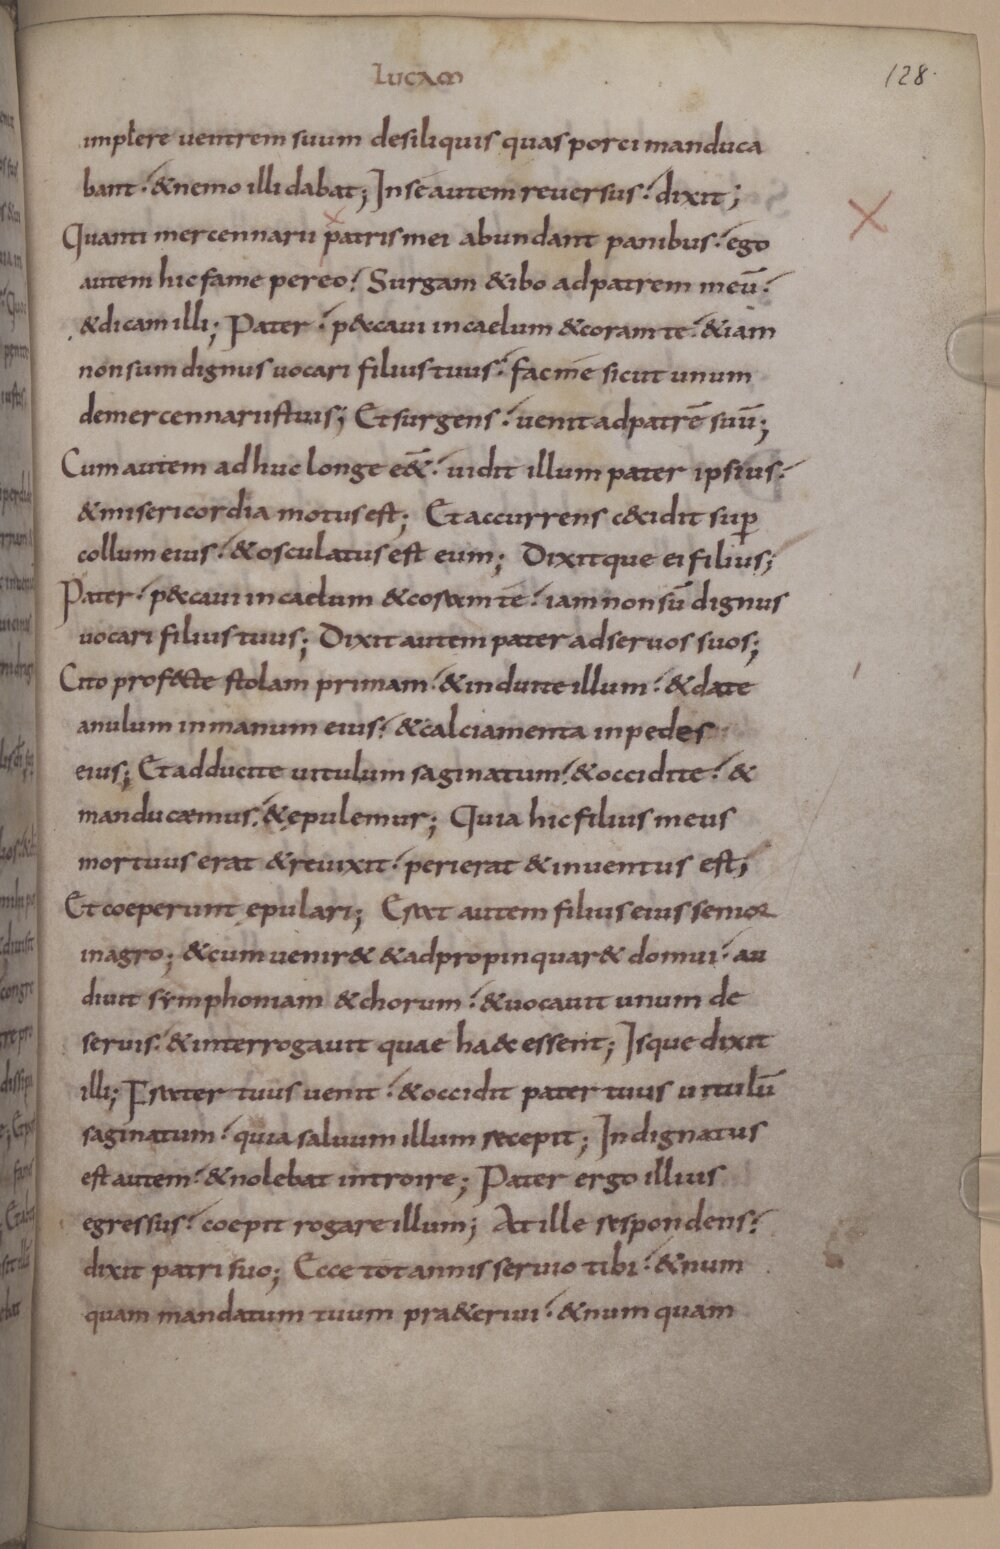 LUCAM
128.
implere uentrem suum desiliquis quas porci manduca
bant. &nemo illi dabat; Inse autem reuersus. dixit;
Quanti mercennarii patris mei abundant panibus. ego
autem hic fame pereo. Surgam &ibo adpatrem meū.
&dicam illi; Pater. p&caui incaelum &coram te. &iam
non sum dignus uocari filius tuus. fac me sicut unum
demercennariis tuis; Et surgens. uenit adpatrē suū;
Cum autem adhuc longe eē&. uidit illum pater ipsius.
&misericordia motus est; Et accurrens c&cidit sup̄
collum eius. &osculatus est eum; Dixitque ei filius;
Pater. p&caui incaelum &coram te. iam non sū dignus
uocari filius tuus; Dixit autem pater adseruos suos;
Cito prof&te stolam primam. &induite illum. &date
anulum inmanum eius. &calciamenta inpedes
eius; Et adducite uitulum saginatum. &occidite. &
manducemus. &epulemur; Quia hic filius meus
mortuus erat &reuixit. perierat &inuentus est;
Et coeperunt epulari; Erat autem filius eius senior
inagro; &cum uenir& &adpropinquar& domui. au
diuit symphoniam &chorum. &uocauit unum de
seruis. &interrogauit quae ha&c essent; Isque dixit
illi; Frater tuus uenit. &occidit pater tuus uitulū
saginatum. quia saluum illum recepit; Indignatus
est autem. &nolebat introire; Pater ergo illius
egressus. coepit rogare illum; At ille respondens.
dixit patri suo; Ecce tot annis seruio tibi. &num
quam mandatum tuum pra&eriui. &numquam